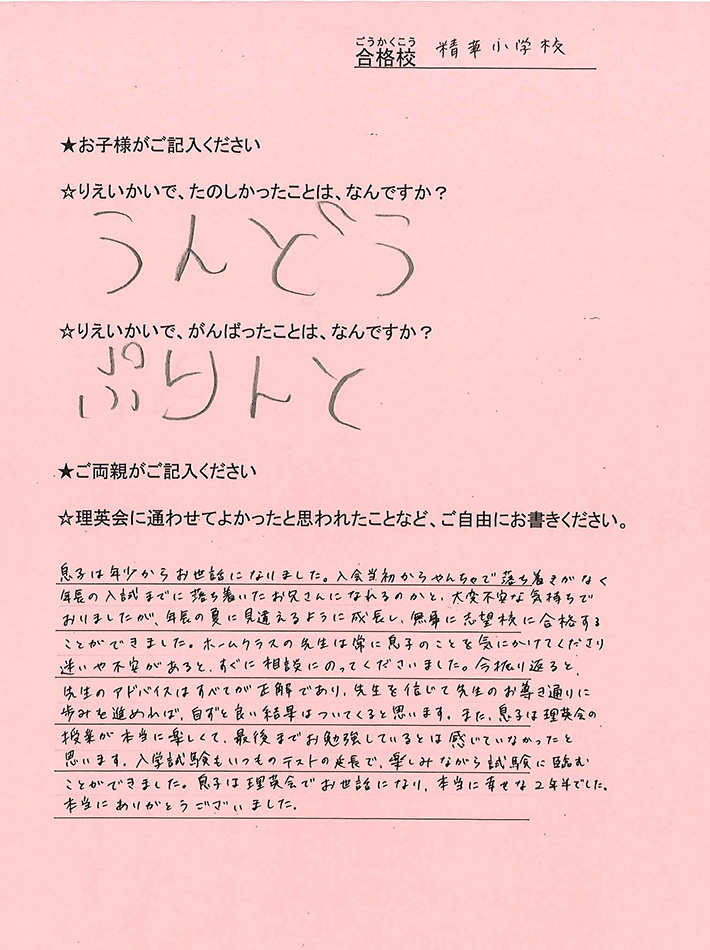 ごうかくこう
合格校 精華小学校
★お子様がご記入ください
☆りえいかいで、たのしかったことは、なんですか？
うんどう
☆りえいかいで、がんばったことは、なんですか？
ぷりんと
★ご両親がご記入ください
☆理英会に通わせてよかったと思われたことなど、ご自由にお書きください。
息子は年少からお世話になりました。入会当初からやんちゃで落ち着きがなく
年長の入試までに落ち着いたお兄さんになれるのかと、大変不安な気持ちで
おりましたが、年長の夏に見違えるように成長し、無事に志望校に合格する
ことができました。ホームクラスの先生は常に息子のことを気にかけてくださり
迷いや不安があると、すぐに相談にのってくださいました。今振り返ると、
先生のアドバイスはすべてが正解であり、先生を信じて先生のお導き通りに
歩みを進めれば、自ずと良い結果はついてくると思います。また、息子は理英会の
授業が本当に楽しくて、最後までお勉強しているとは感じていなかったと
思います。入学試験もいつものテストの延長で、楽しみながら試験に臨む
ことができました。息子は理英会でお世話になり、本当に幸せな2年半でした。
本当にありがとうございました。